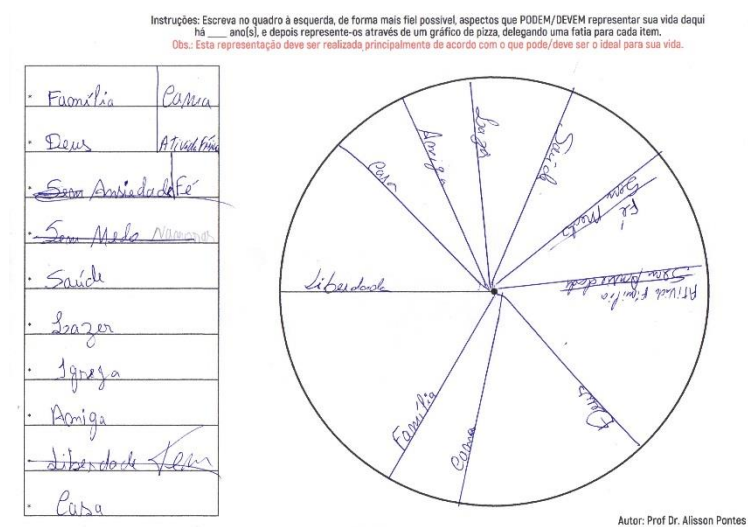 Instruções: Escreva no quadro à esquerda, de forma mais fiel possível, aspectos que PODEM/DEVEM representar sua vida daqui
há ____ ano(s), e depois represente-os através de um gráfico de pizza, delegando uma fatia para cada item.
Obs.: Esta representação deve ser realizada principalmente de acordo com o que pode/deve ser o ideal para sua vida.
Família Cama
Deus Ativid Física
Sem Ansiedade Fé
Sem Medo
Saúde
Lazer
Igreja
Amiga
Liberdade
Casa
Casa
Amiga
Lazer
Saúde
Sem Medo
Fé
Sem Ansiedade
Ativid Física
Deus
Cama
Família
Liberdade
Autor: Prof Dr. Alisson Pontes